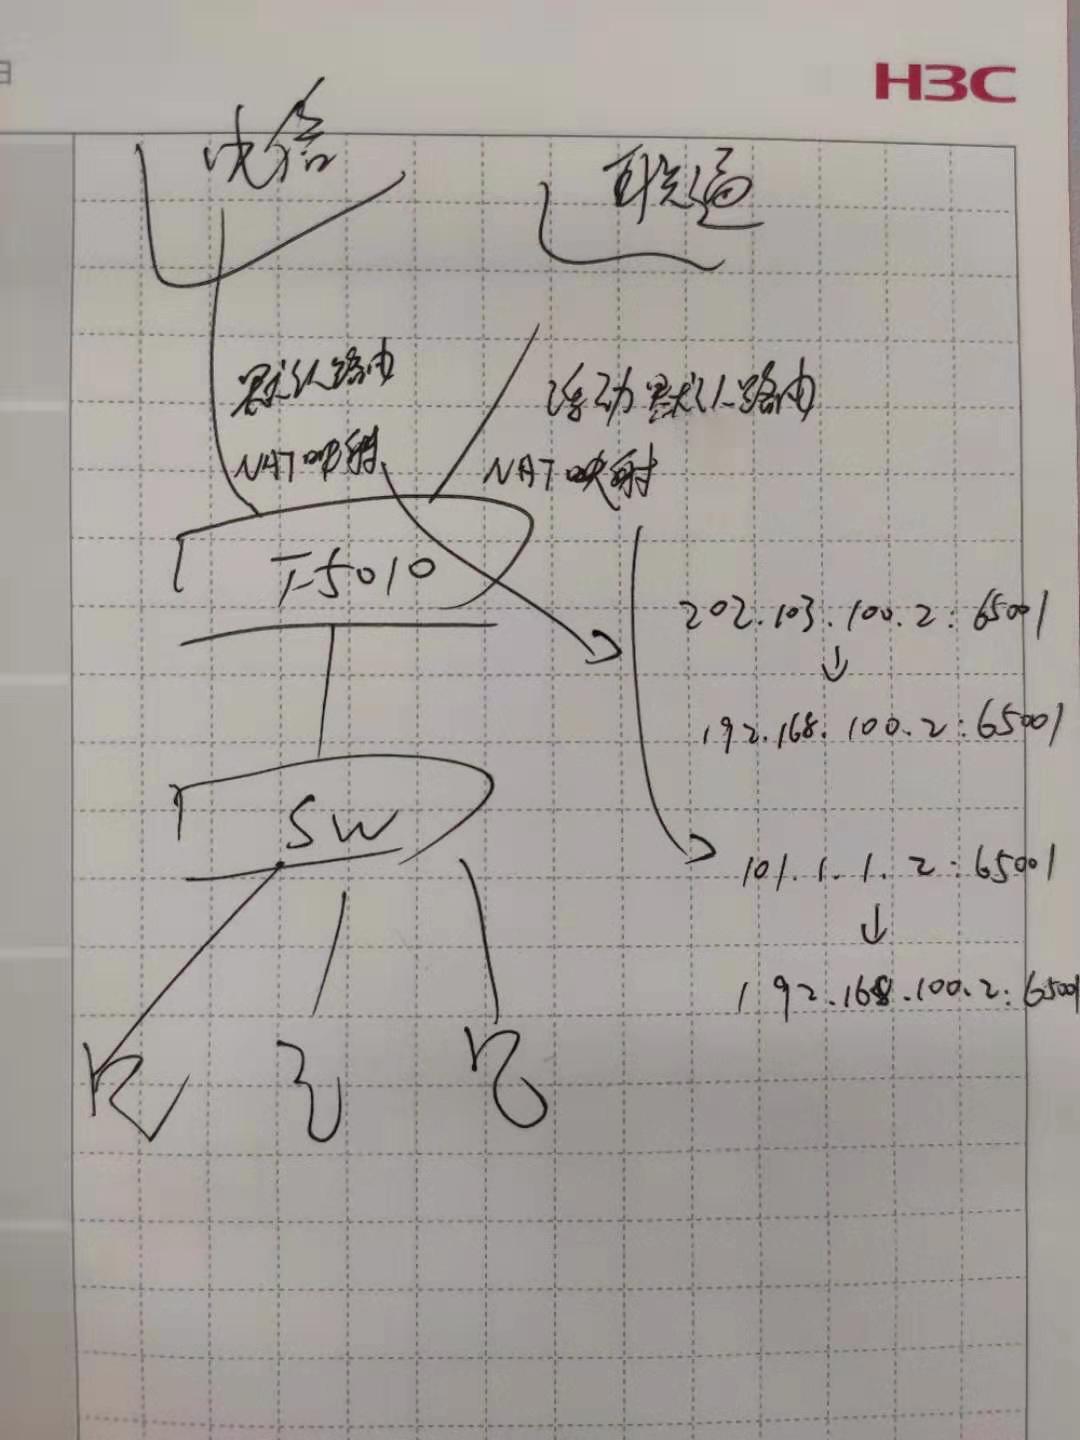 H3C
电信
联通
默认路由
浮动默认路由
NAT映射
NAT映射
F5010
202.103.100.2:65001
↓
192.168.100.2:65001
SW
101.1.1.2:65001
↓
192.168.100.2:65001